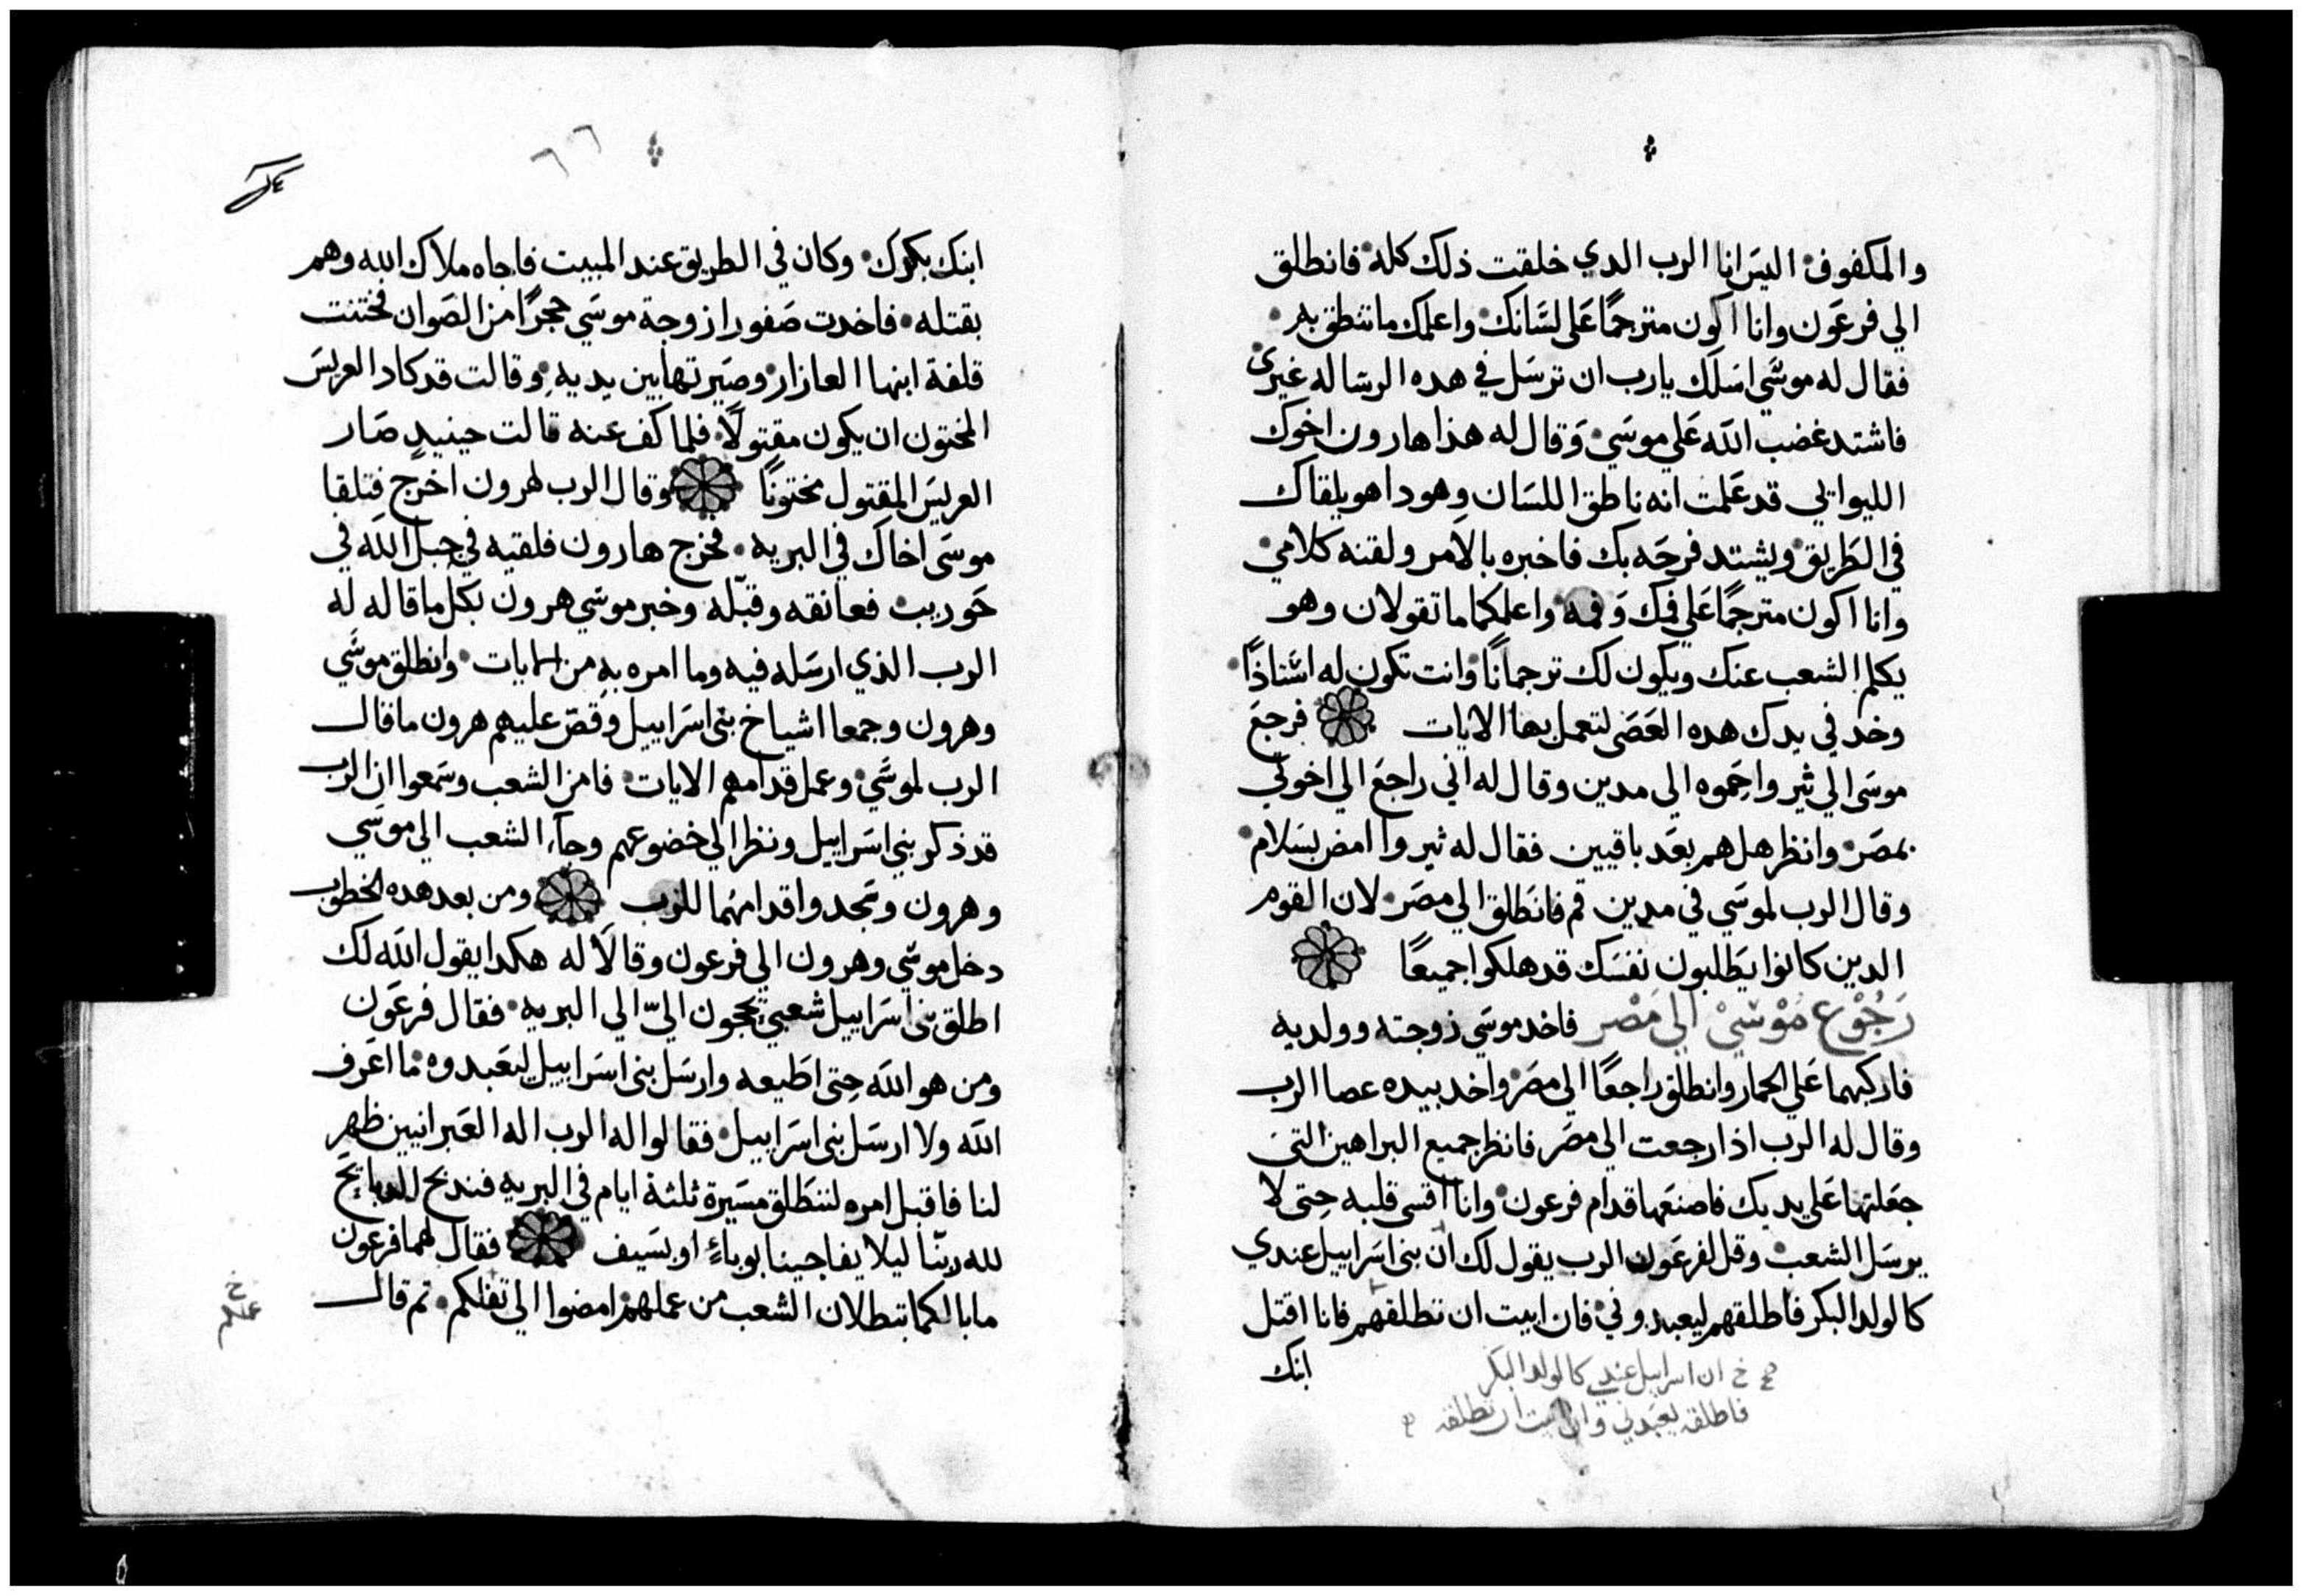 والمكفوف اليس انا الرب الدي خلقت ذلك كله فانطلق
الي فرعون وانا اكون مترجمًا علي لسَانك واعلمك ما تنطق به
فقال له موسَي اسَلَك يارب ان ترسَل في هده الرسَاله غيري
فاشتد غضب الله عَلي موسَي وَقال له هذا هارون اخوك
الليواني قد عَلمت انه ناطق اللسَان وهودا هو يلقاك
في الطَريق ويشتد فرحَه بك فاخبره بالامر ولقنه كلامي
وانا اكون مترجمًا عَلي فمك وَفمه واعلمكما ما تقولان وهو
يكلم الشعب عنك ويكون لك ترجمانًا وانت تكون له استاذًا
وخد في يدك هده العَصَى لتعمل بها الايات فرجعَ
موسَى الي ثيروا حَموه الى مدين وقال له اني راجعَ الي اخوتي
بمصَر وانظر هل هم بعَد باقيين فقال له ثيروا امض بسَلام
وقال الرب لموسَي في مدين قم فانطَلق الي مصَر لان القوم
الدين كانوا يَطلبون نفسَك قد هلكوا جميعًا
رَجُوْع مُوْسَيْ الي مَصْر فاخد موسَي زوجته وولديه
فاركبهما عَلي الحمار وانطلق راجعًا الي مصَر واخد بيده عصا الرب
وقال له الرب اذا رجعت الي مصَر فانظر جميع البراهين التي
جعَلتها عَلي يديك فاصنعَها قدام فرعون وانا اقسى قلبه حِتى لا
يرسَل الشعب وقل لفرعَون الرب يقول لك ان بنى اسَراييل عندي
كالولد البكر فاطلقهم ليعبدوني فان ابيت ان تطلقهم فانا اقتل
ابنك
خ ان اسراييل عندي كالولد البكر
فاطلقه يعَبدني وان ابيت ان تطلقه
٦٦
ابنك بكرك وكان في الطريق عند المبيت فاجاه ملاك الله وهم
بقتله فاخدت صَفورا زوجة موسَي حجرًا من الصَوان فختنت
قلفة ابنها العازار وصيَرتها بين يديه وقالت قد كاد العريسَ
المختون ان يكون مقتولًا فلما كف عنه قالت حينيدٍ صَار
العريسَ المقتول مختونًا وقال الرب لهرون اخرج فتلقا
موسَى اخاك في البريه فخرج هارون فلقيه في جبل الله في
حَوريب فعانقه وقبّله وخبر موسَي هرون بكل ما قاله له
الرب الذي ارسَله فيه وما امره به من الايات وانطلق موسَي
وهرون وجمعا اشياخ بنى اسَراييل وقصّ عليهم هرون ما قال
الرب لموسَي وعمل قدامهم الايات فامن الشعب وسَمعوا ان الرب
قد ذكر بني اسَراييل ونظر الي خضوعهم وجآء الشعب الي موسَي
وهرون وسَجدوا قدامهما للرب ومن بعد هده الخطوب
دخل موسَي وهرون الي فرعون وقالَا له هكدا يقول الله لك
اطلق بنى اسَراييل شعبي يحجون اليّ الي البريه فقال فرعَون
ومن هو الله حِتى اطَيعه وارسَل بنى اسَراييل ليعَبدوه ما اعَرف
الله ولا ارسَل بنى اسَراييل فقالوا له الرب اله العَبرانيين ظهر
لنا فاقبل امره لننطَلق مسَيرة ثلثة ايام في البريه فندبح الدبايح
لله ربّنا ليلا يفاجينا بوباءٍ او بسَيف فقال لهما فرعون
ما بالكما تبطلان الشعب من عملهم امضوا الي ثقلكم تم قال